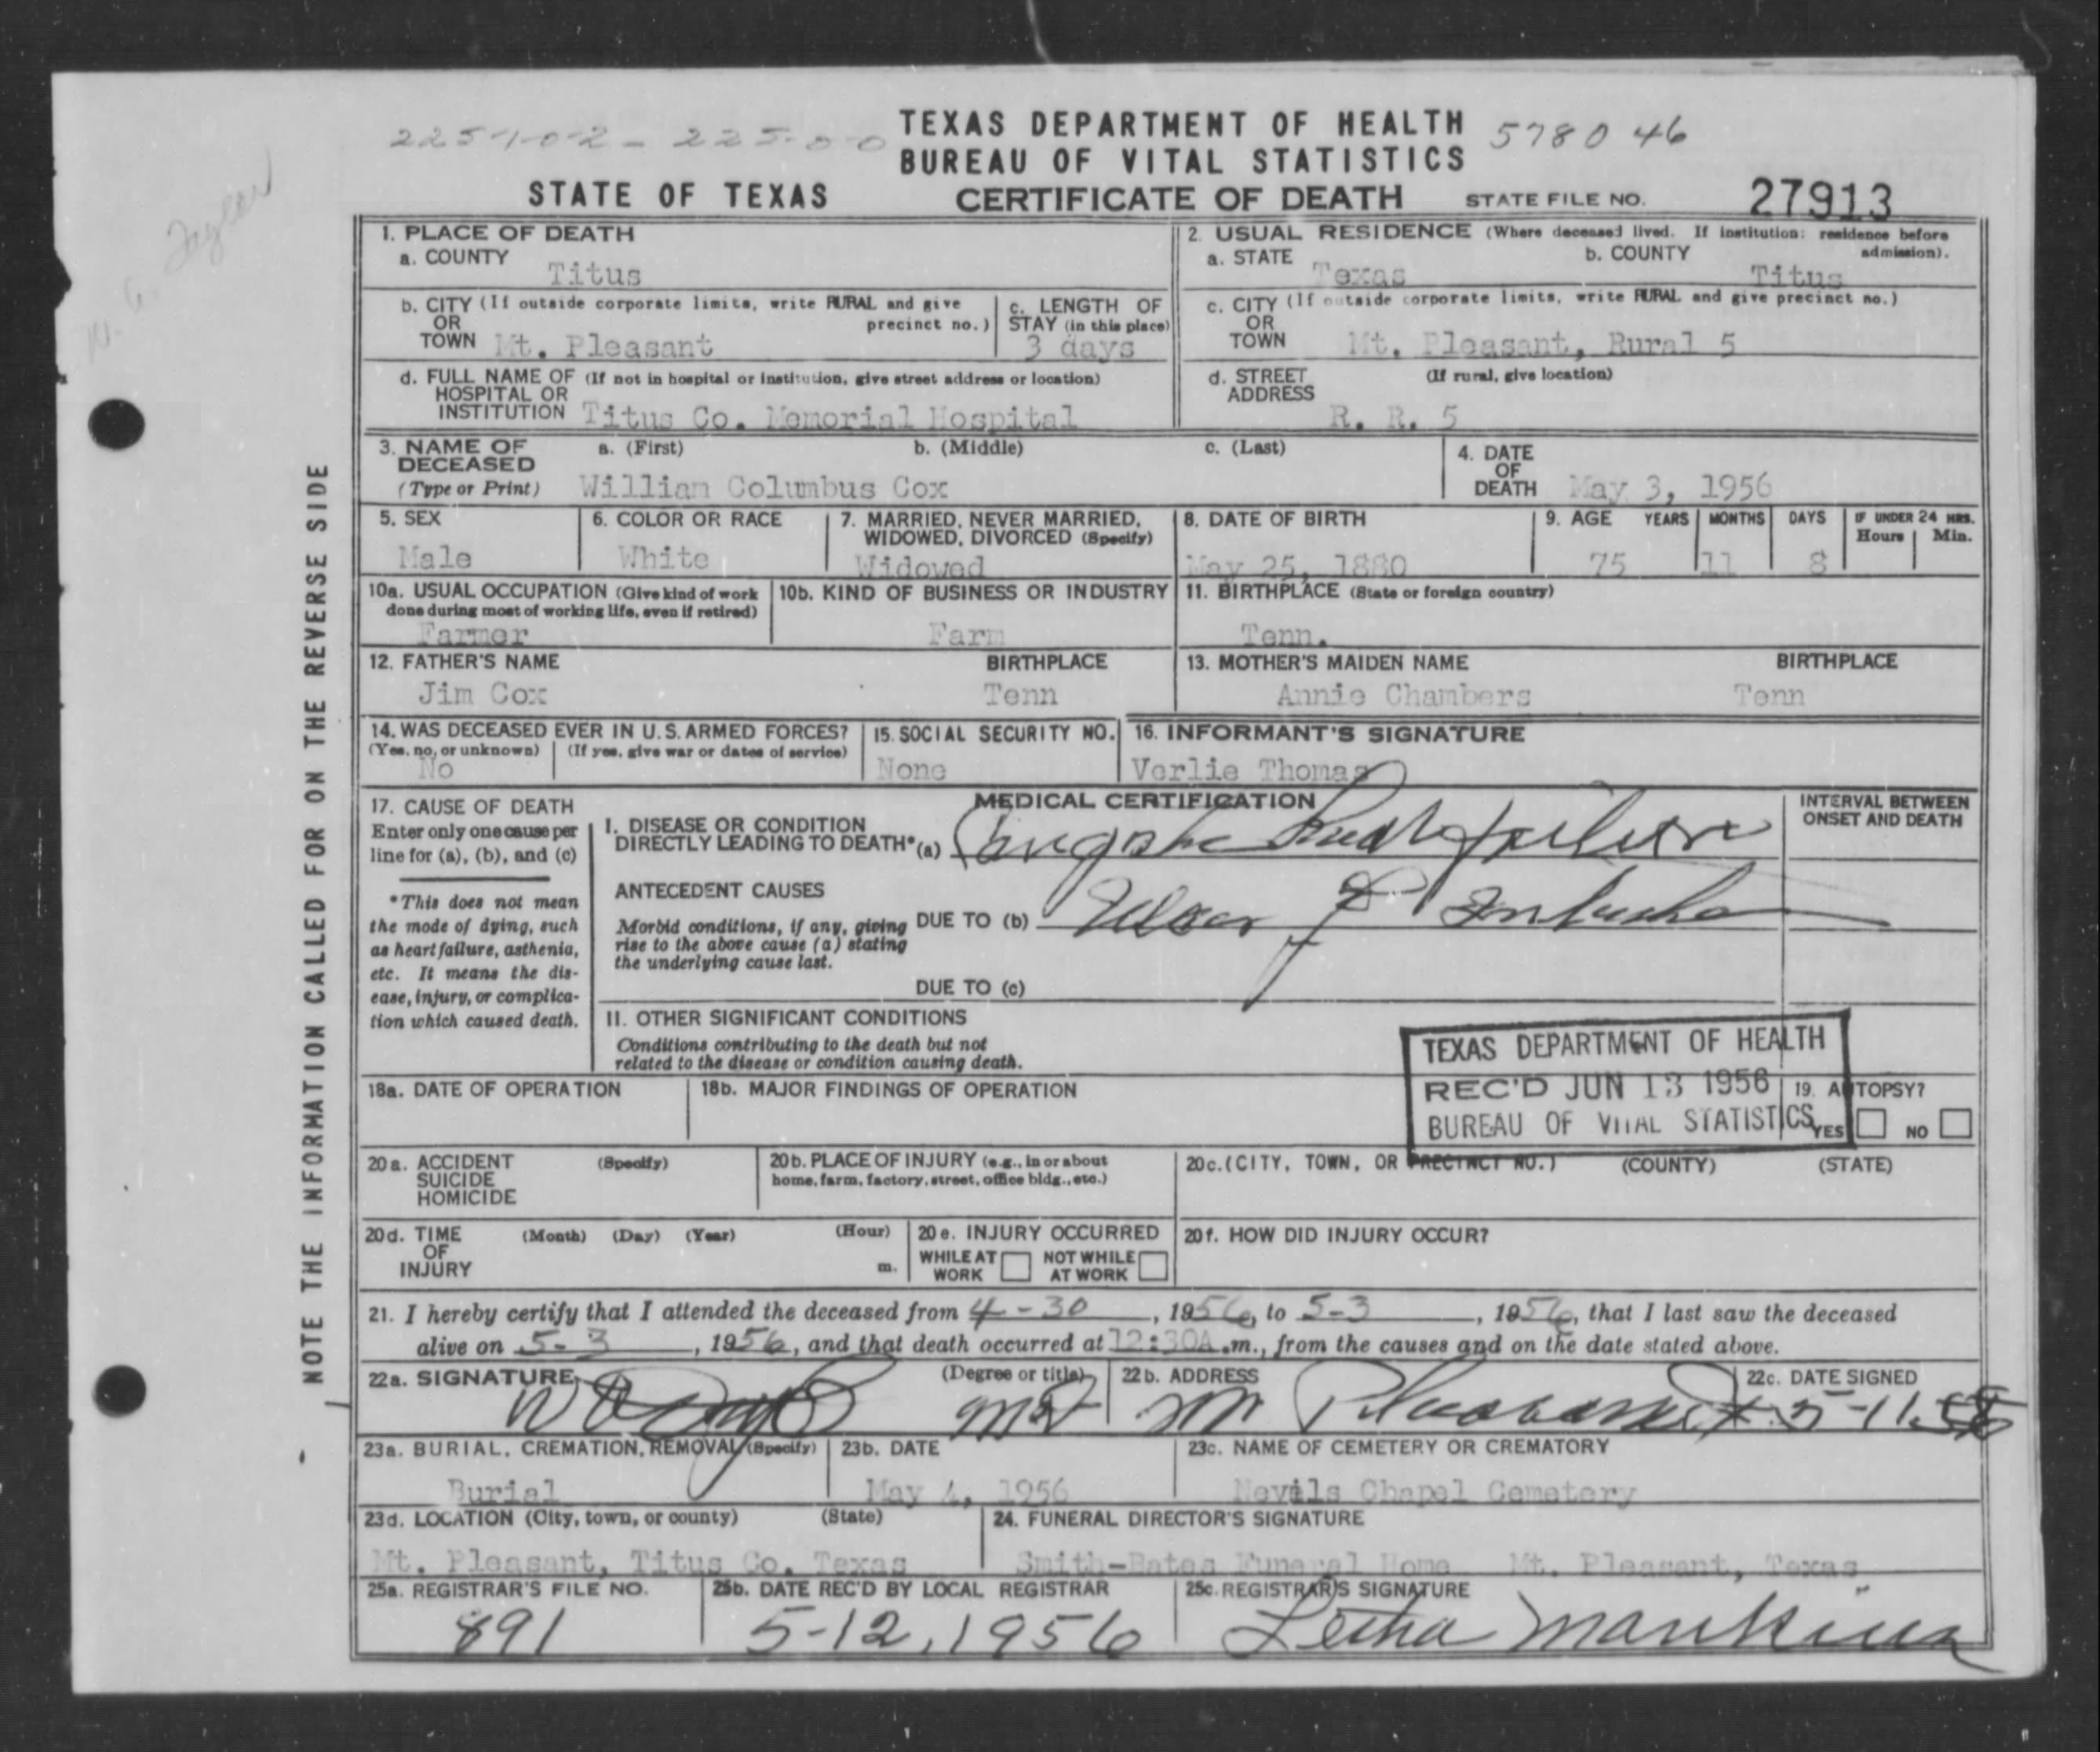 225-1-0-2 - 225-0-0
TEXAS DEPARTMENT OF HEALTH
5780 46
BUREAU OF VITAL STATISTICS
STATE OF TEXAS CERTIFICATE OF DEATH STATE FILE NO. 27913
W. C. Taylor
NOTE THE INFORMATION CALLED FOR ON THE REVERSE SIDE
1. PLACE OF DEATH
a. COUNTY Titus
2. USUAL RESIDENCE (Where deceased lived. If institution: residence before admission).
a. STATE Texas b. COUNTY Titus
b. CITY (If outside corporate limits, write RURAL and give precinct no.)
OR
TOWN Mt. Pleasant
c. LENGTH OF
STAY (in this place)
3 days
c. CITY (If outside corporate limits, write RURAL and give precinct no.)
OR
TOWN Mt. Pleasant, Rural 5
d. FULL NAME OF (If not in hospital or institution, give street address or location)
HOSPITAL OR
INSTITUTION Titus Co. Memorial Hospital
d. STREET (If rural, give location)
ADDRESS
R. R. 5
3. NAME OF a. (First) b. (Middle) c. (Last)
DECEASED
(Type or Print) William Columbus Cox
4. DATE
OF
DEATH May 3, 1956
5. SEX
Male
6. COLOR OR RACE
White
7. MARRIED, NEVER MARRIED,
WIDOWED, DIVORCED (Specify)
Widowed
8. DATE OF BIRTH
May 25, 1880
9. AGE YEARS MONTHS DAYS IF UNDER 24 HRS.
Hours Min.
75 11 8
10a. USUAL OCCUPATION (Give kind of work
done during most of working life, even if retired)
Farmer
10b. KIND OF BUSINESS OR INDUSTRY
Farm
11. BIRTHPLACE (State or foreign country)
Tenn.
12. FATHER'S NAME BIRTHPLACE
Jim Cox Tenn
13. MOTHER'S MAIDEN NAME BIRTHPLACE
Annie Chambers Tenn
14. WAS DECEASED EVER IN U.S. ARMED FORCES?
(Yes, no, or unknown) (If yes, give war or dates of service)
No
15. SOCIAL SECURITY NO.
None
16. INFORMANT'S SIGNATURE
Verlie Thomas
17. CAUSE OF DEATH
Enter only one cause per
line for (a), (b), and (c)
*This does not mean
the mode of dying, such
as heart failure, asthenia,
etc. It means the dis-
ease, injury, or complica-
tion which caused death.
MEDICAL CERTIFICATION
INTERVAL BETWEEN
ONSET AND DEATH
I. DISEASE OR CONDITION
DIRECTLY LEADING TO DEATH* (a) Congestive heart failure
ANTECEDENT CAUSES
Morbid conditions, if any, giving
rise to the above cause (a) stating
the underlying cause last.
DUE TO (b)
DUE TO (c)
II. OTHER SIGNIFICANT CONDITIONS
Conditions contributing to the death but not
related to the disease or condition causing death.
TEXAS DEPARTMENT OF HEALTH
REC'D JUN 13 1956
BUREAU OF VITAL STATISTICS
18a. DATE OF OPERATION
18b. MAJOR FINDINGS OF OPERATION
19. AUTOPSY?
YES NO
20a. ACCIDENT (Specify)
SUICIDE
HOMICIDE
20b. PLACE OF INJURY (e.g., in or about
home, farm, factory, street, office bldg., etc.)
20c. (CITY, TOWN, OR PRECINCT NO.) (COUNTY) (STATE)
20d. TIME (Month) (Day) (Year) (Hour)
OF
INJURY m.
20e. INJURY OCCURRED
WHILE AT WORK NOT WHILE AT WORK
20f. HOW DID INJURY OCCUR?
21. I hereby certify that I attended the deceased from 4-30, 1956, to 5-3, 1956, that I last saw the deceased
alive on 5-3, 1956, and that death occurred at 12:30A.m., from the causes and on the date stated above.
22a. SIGNATURE (Degree or title)
MD
22b. ADDRESS
Mt Pleasant Tx
22c. DATE SIGNED
5-11-56
23a. BURIAL, CREMATION, REMOVAL (Specify)
Burial
23b. DATE
May 4, 1956
23c. NAME OF CEMETERY OR CREMATORY
Nevils Chapel Cemetery
23d. LOCATION (City, town, or county) (State)
Mt. Pleasant, Titus Co. Texas
24. FUNERAL DIRECTOR'S SIGNATURE
Smith-Bates Funeral Home Mt. Pleasant, Texas
25a. REGISTRAR'S FILE NO.
891
25b. DATE REC'D BY LOCAL REGISTRAR
5-12, 1956
25c. REGISTRAR'S SIGNATURE
Letha Mankins